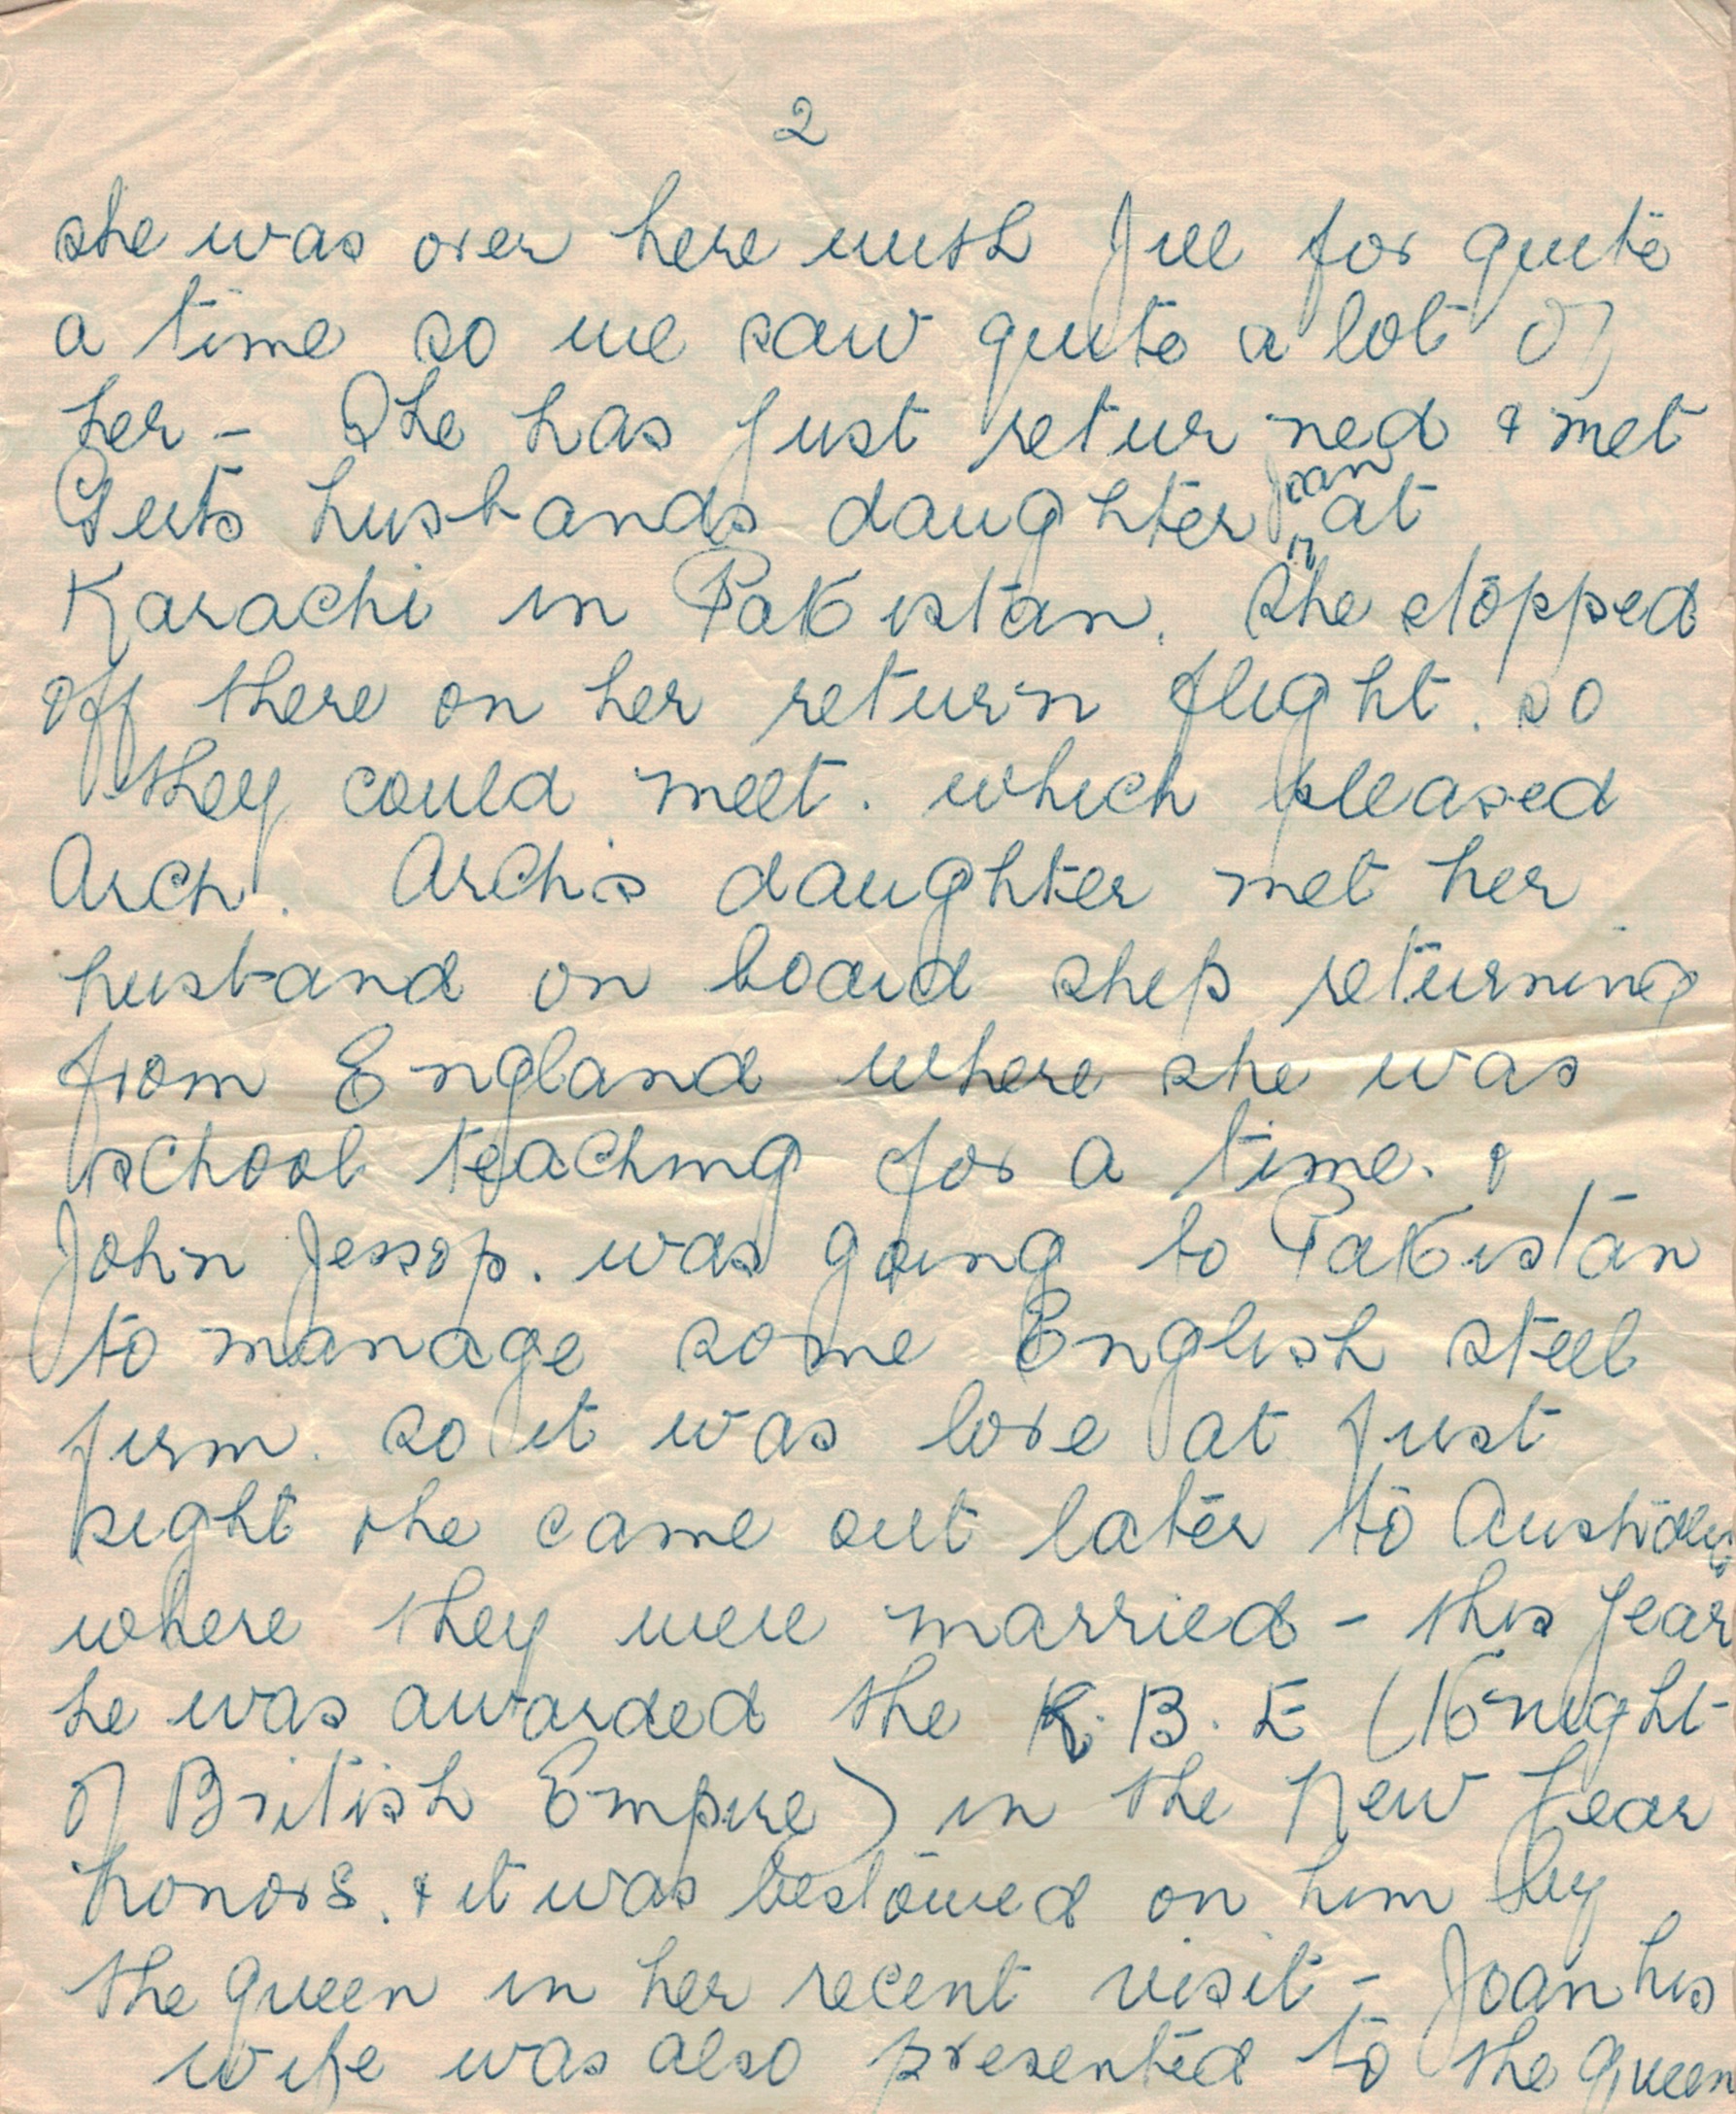 2
she was over here with Jill for quite
a time so we saw quite a lot of
her - She has just returned & met
Gerts husbands daughter Joan at
Karachi in Pakistan. She stopped
off there on her return flight. so
they could meet. which pleased
Arch. Arch's daughter met her
husband on board ship returning
from England where she was
school teaching for a time. &
John Jessop. was going to Pakistan
to manage some English steel
firm. so it was love at first
sight & he came out later to Australia
where they were married - this year
he was awarded the K.B.E (Knight
of British Empire) in the New Year
honors. & it was bestowed on him by
the queen in her recent visit - Joan his
wife was also presented to the queen